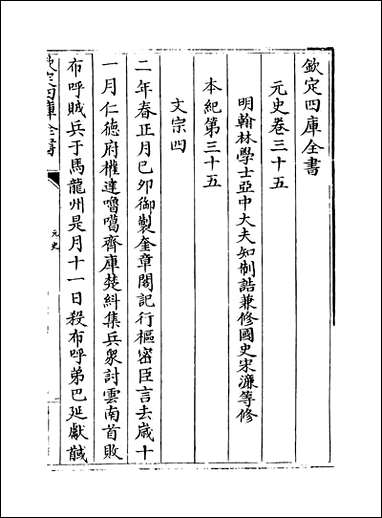 欽定四庫全書
元史卷三十五
明翰林學士亞中大夫知制誥兼修國史宋濂等修
本紀第三十五
文宗四
二年春正月己夘御製奎章閣記行樞密臣言去歲十
一月仁德府權達嚕噶齊庫楚糾集兵衆討雲南首敗
布呼賊兵于馬龍州是月十一日殺布呼弟巴延獻馘
欽定四庫全書
元史